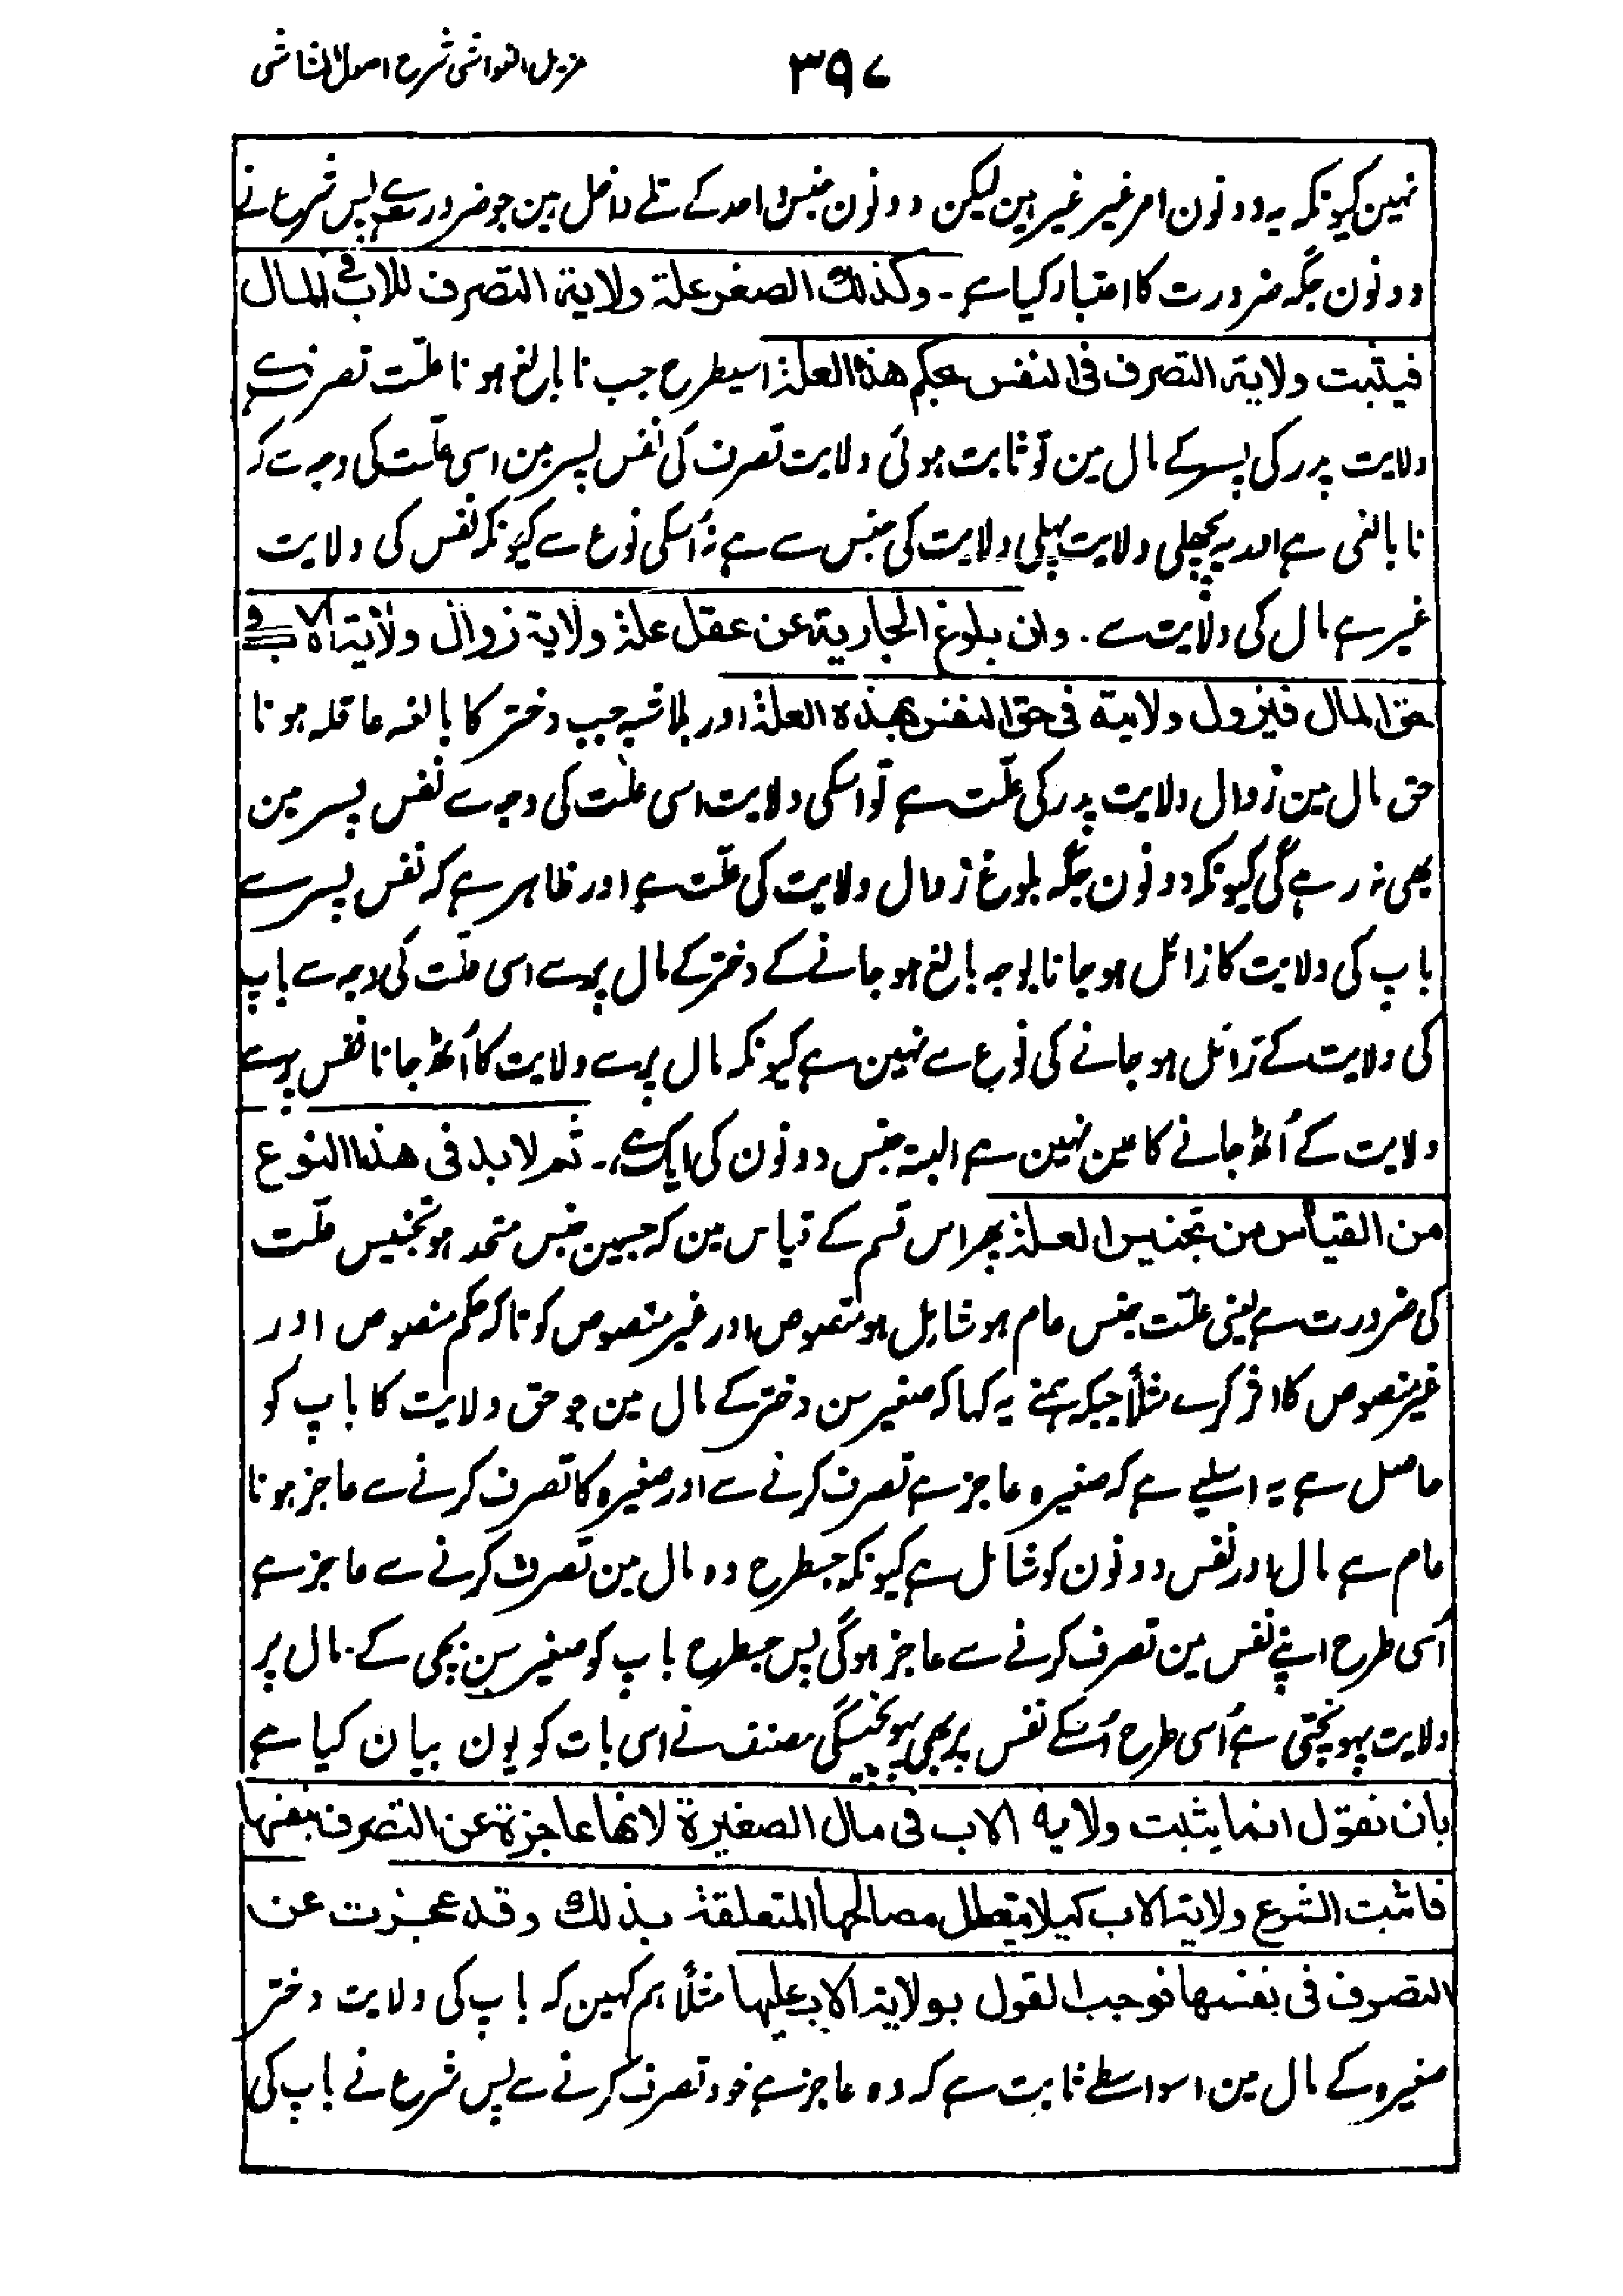 مزیل الغواشی شرح اصول الشاشی
۳۹۷
نہین کیونکہ یہ دونون امر غیر غیر ہین لیکن دونون جنس واحد کے تلے داخل ہین جو ضرورت ہے پس شرع نے
دونون جگہ ضرورت کا اعتبار کیا ہے۔ وکذلك الصغر علة ولاية التصرف للاب فی المال
فیثبت ولاية التصرف فی النفس بحکم هذه العلة اسیطرح جب نا بالغ ہونا علّت تصرف ہے
ولایت پدر کی پسر کے مال مین تو ثابت ہوئی ولایت تصرف کی نفس پسر مین اسی علّت کی وجہ سے کہ
نابالغی ہے اور یہ پچھلی ولایت پہلی ولایت کی جنس سے ہے نہ اُسکی نوع سے کیونکہ نفس کی ولایت
غیر ہے مال کی ولایت سے۔ وان بلوغ الجارية عن عقل علة ولاية زوال ولاية الاب فی
حق المال فیزول ولایته فی حق النفس بهذه العلة اور بلاشبہ جب دختر کا بالغہ عاقلہ ہونا
حق مال مین زوال ولایت پدر کی علّت ہے تو اسکی ولایت اسی علّت کی وجہ سے نفس پسر مین
بھی نہ رہے گی کیونکہ دونون جگہ بلوغ زوال ولایت کی علّت ہے اور ظاہر ہے کہ نفس پسر سے
باپ کی ولایت کا زائل ہو جانا بوجہ بالغ ہو جانے کے دختر کے مال پر سے اسی علّت کی وجہ سے باپ
کی ولایت کے زائل ہو جانے کی نوع سے نہین ہے کیونکہ مال پر سے ولایت کا اُٹھ جانا نفس پر سے
ولایت کے اُٹھ جانے کا عین نہین ہے البتہ جنس دونون کی ایک ہے۔ ثم لابد فی هذا النوع
من القیاس من تجنیس العلة پھر اس قسم کے قیاس مین کہ جسمین جنس متحد ہو تجنیس علّت
کی ضرورت ہے یعنی علّت جنس عام ہو شامل ہو منصوص اور غیر منصوص کو تاکہ حکم منصوص اور
غیر منصوص کا اثر کرے مثلاً جبکہ ہمنے یہ کہا کہ صغیر سن دختر کے مال مین جو حق ولایت کا باپ کو
حاصل ہے یہ اسلیے ہے کہ صغیرہ عاجز ہے تصرف کرنے سے اور صغیرہ کا تصرف کرنے سے عاجز ہونا
عام ہے مال اور نفس دونون کو شامل ہے کیونکہ جسطرح وہ مال مین تصرف کرنے سے عاجز ہے
اُسی طرح اپنے نفس مین تصرف کرنے سے عاجز ہوگی پس جسطرح باپ کو صغیر سن بچی کے مال پر
ولایت پہونچتی ہے اُسی طرح اُسکے نفس پر بھی پہونچیگی مصنف نے اسی بات کو یون بیان کیا ہے
بان نقول انما یثبت ولایة الاب فی مال الصغیرة لانها عاجزة عن التصرف بنفسها
فاثبت الشرع ولایة الاب کیلا یتعطل مصالحها المتعلقة بذلك وقد عجزت عن
التصرف فی نفسها فوجب القول بولایة الاب علیها مثلاً ہم کہین کہ باپ کی ولایت دختر
صغیرہ کے مال مین اسواسطے ثابت ہے کہ وہ عاجز ہے خود تصرف کرنے سے پس شرع نے باپ کی